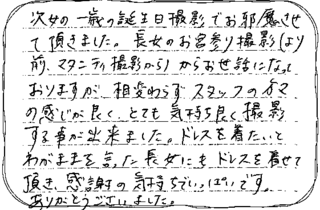 次女の一歳の誕生日撮影でお邪魔させ
て頂きました。長女のお宮参り撮影(より
前、マタニティ撮影から)からお世話になって
おりますが、相変わらずスタッフの方々
の感じが良く、とても気持ち良く撮影
する事が出来ました。ドレスを着たいと
わがままを言った長女にもドレスを着せて
頂き、感謝の気持ちでいっぱいです。
ありがとうございました。